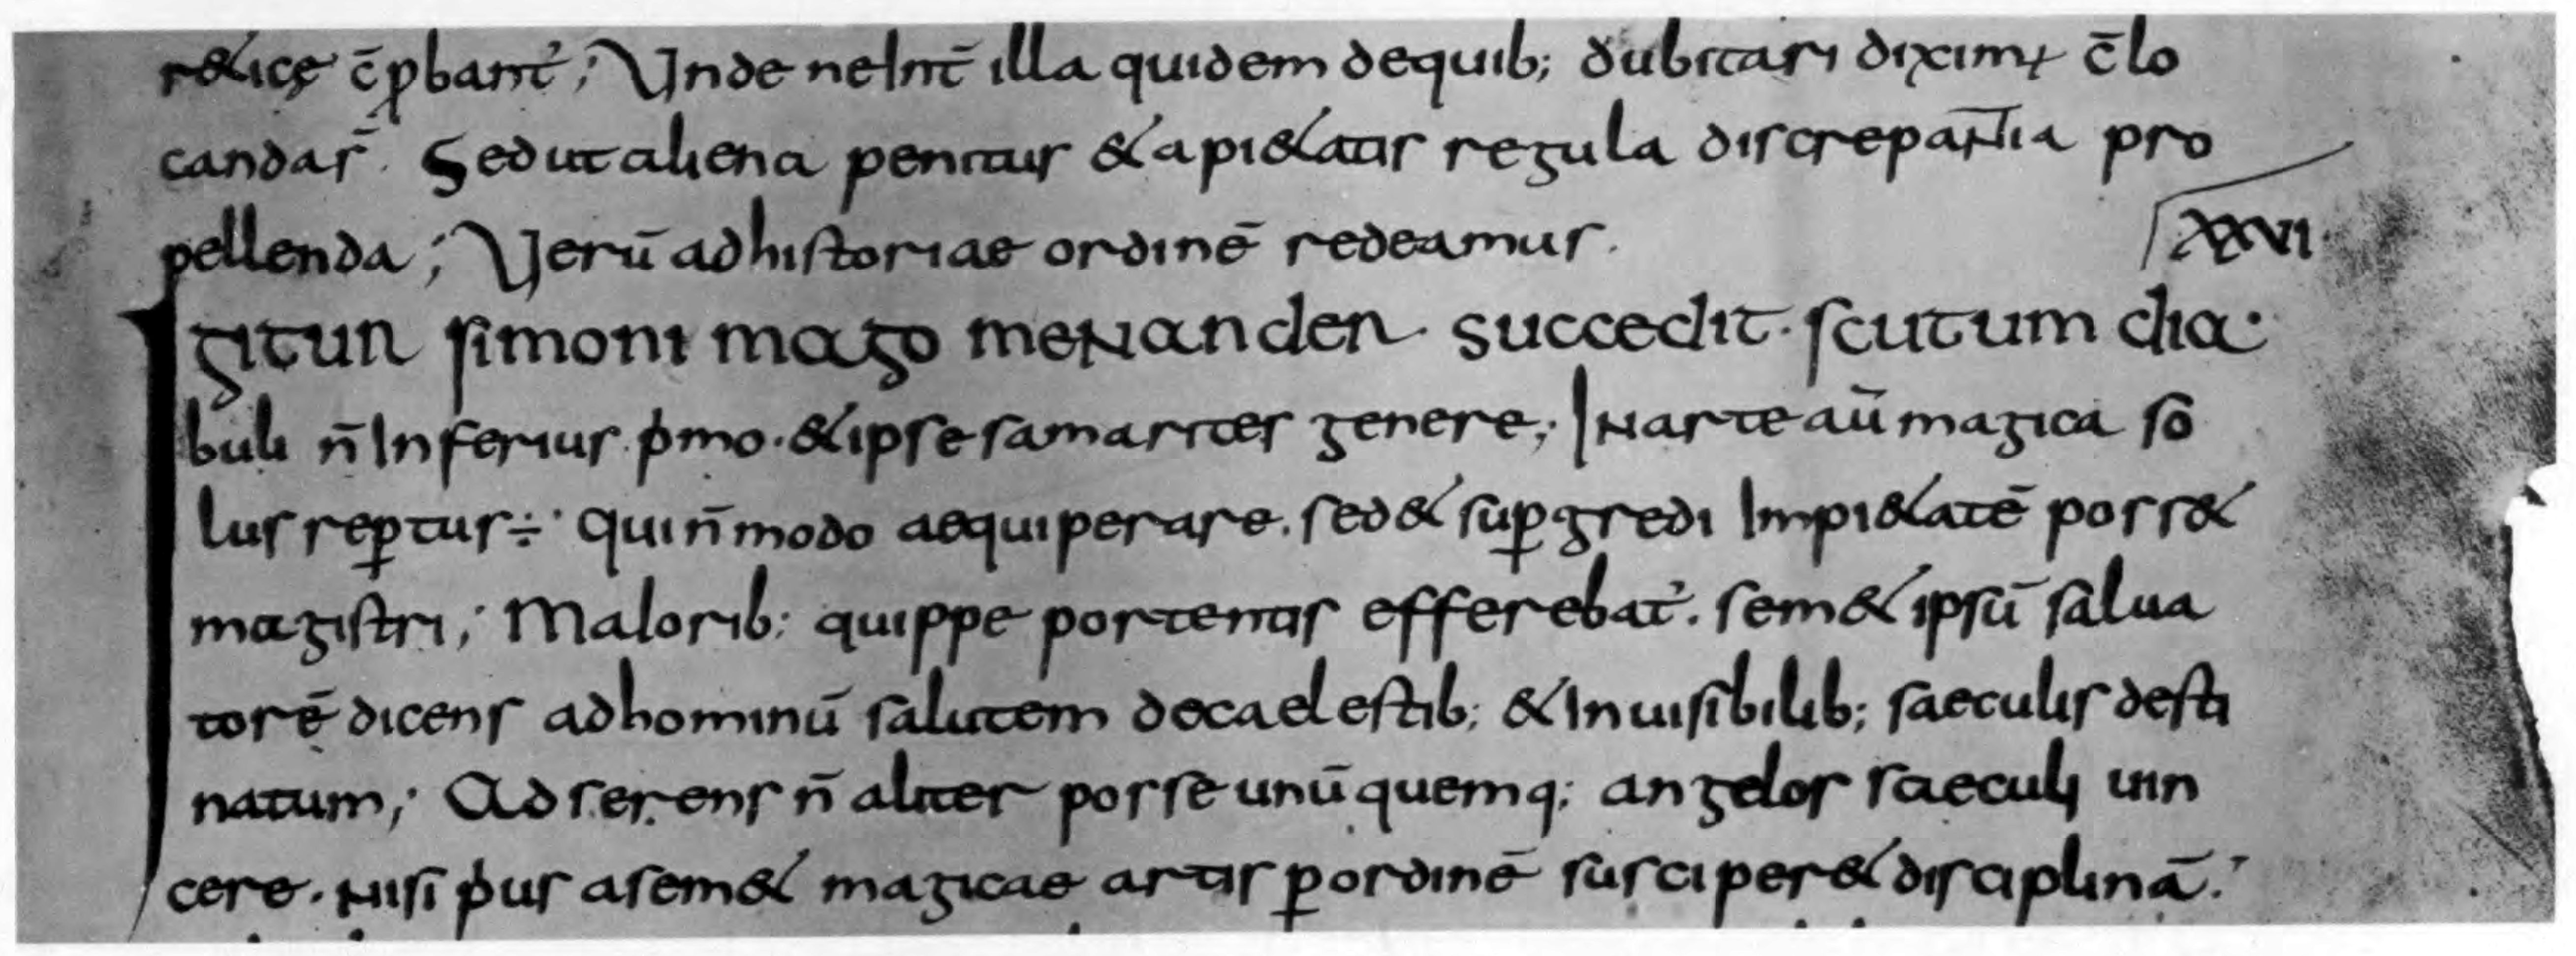 r&icę c̄ꝑbant᷑; Unde ne Int̄ illa quidem dequib; dubitari diximꝰ c̄lo
candas̄. Sed ut aliena penitus & api&atis regula discrepantia pro
pellenda; Verū ad historiae ordinē redeamus.
XXVI
Igitur simoni mago menander. succedit. scutum dia
buli n̄ Inferius. p̍mo. & ipse samarites genere; In arte aū magica so
lus reꝑtus ÷ qui n̄ modo aequiperare. sed & suꝑgredi Impi&atē poss&
magistri; Maiorib; quippe portentis efferebat᷑. sem& ipsū salua
torē dicens ad hominū salutem decaelestib; & Inuisibilib; saeculis desti
natum; Adserens n̄ aliter posse unū quemq; angelos saeculi uin
cere. nisi p̍us asem& magicae artis ꝑ ordinē susciper& disciplinā.